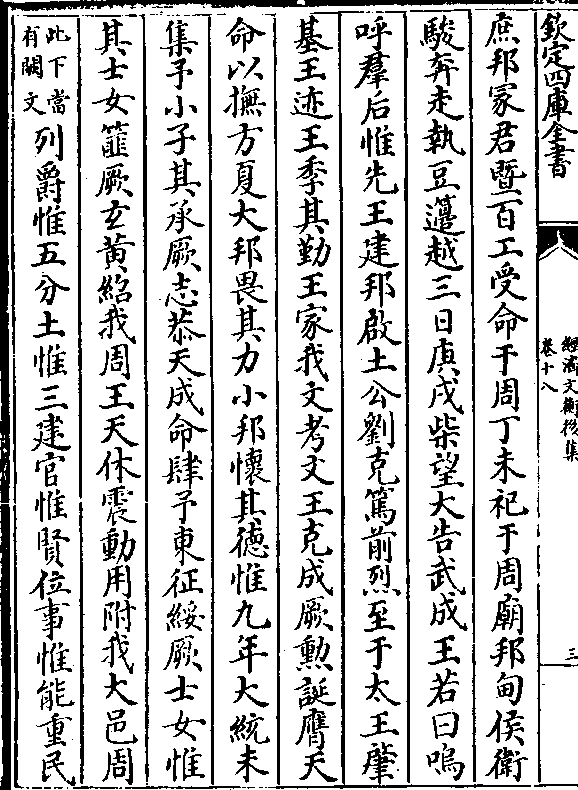 欽定四庫全書
經濟文衡後集
卷十八
三
庶邦冢君暨百工受命于周丁未祀于周廟邦甸侯衛
駿奔走執豆籩越三日庚戌柴望大告武成王若曰嗚
呼羣后惟先王建邦啟土公劉克篤前烈至于太王肇
基王迹王季其勤王家我文考文王克成厥勲誕膺天
命以撫方夏大邦畏其力小邦懷其德惟九年大統未
集予小子其承厥志恭天成命肆予東征綏厥士女惟
其士女篚厥玄黄紹我周王天休震動用附我大邑周
此下當
有闕文
列爵惟五分土惟三建官惟賢位事惟能重民